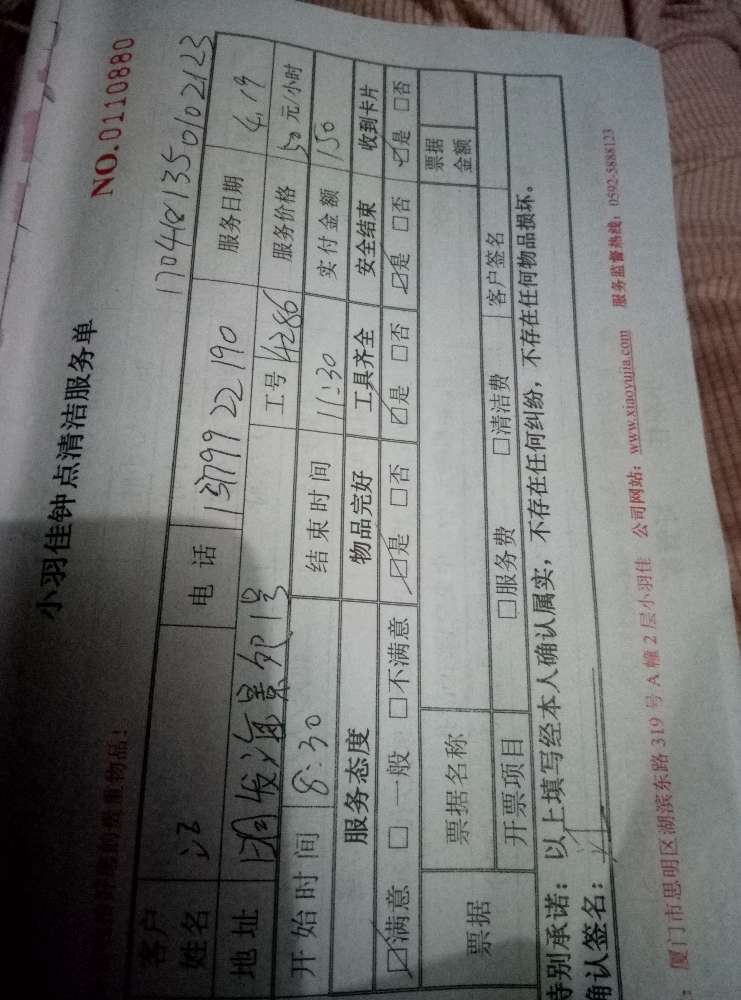 小羽佳钟点清洁服务单
NO.0110880
1704181350102123
的贵重物品!
客户姓名 江 电话 13799 22 190 服务日期 4.19
地址 海景苑1号 工号 4286 服务价格 50元/小时
开始时间 8:30 结束时间 11:30 实付金额 150
服务态度 物品完好 工具齐全 安全结束 收到卡片
☑满意 □一般 □不满意 ☑是 □否 ☑是 □否 ☑是 □否 ☑是 □否
票据 票据名称 票据金额
开票项目 □服务费 □清洁费 客户签名
特别承诺:以上填写经本人确认属实,不存在任何纠纷,不存在任何物品损坏。
确认签名:
:厦门市思明区湖滨东路319号A幢2层小羽佳 公司网站:www.xiaoyujia.com 服务监督热线:0592-5888123